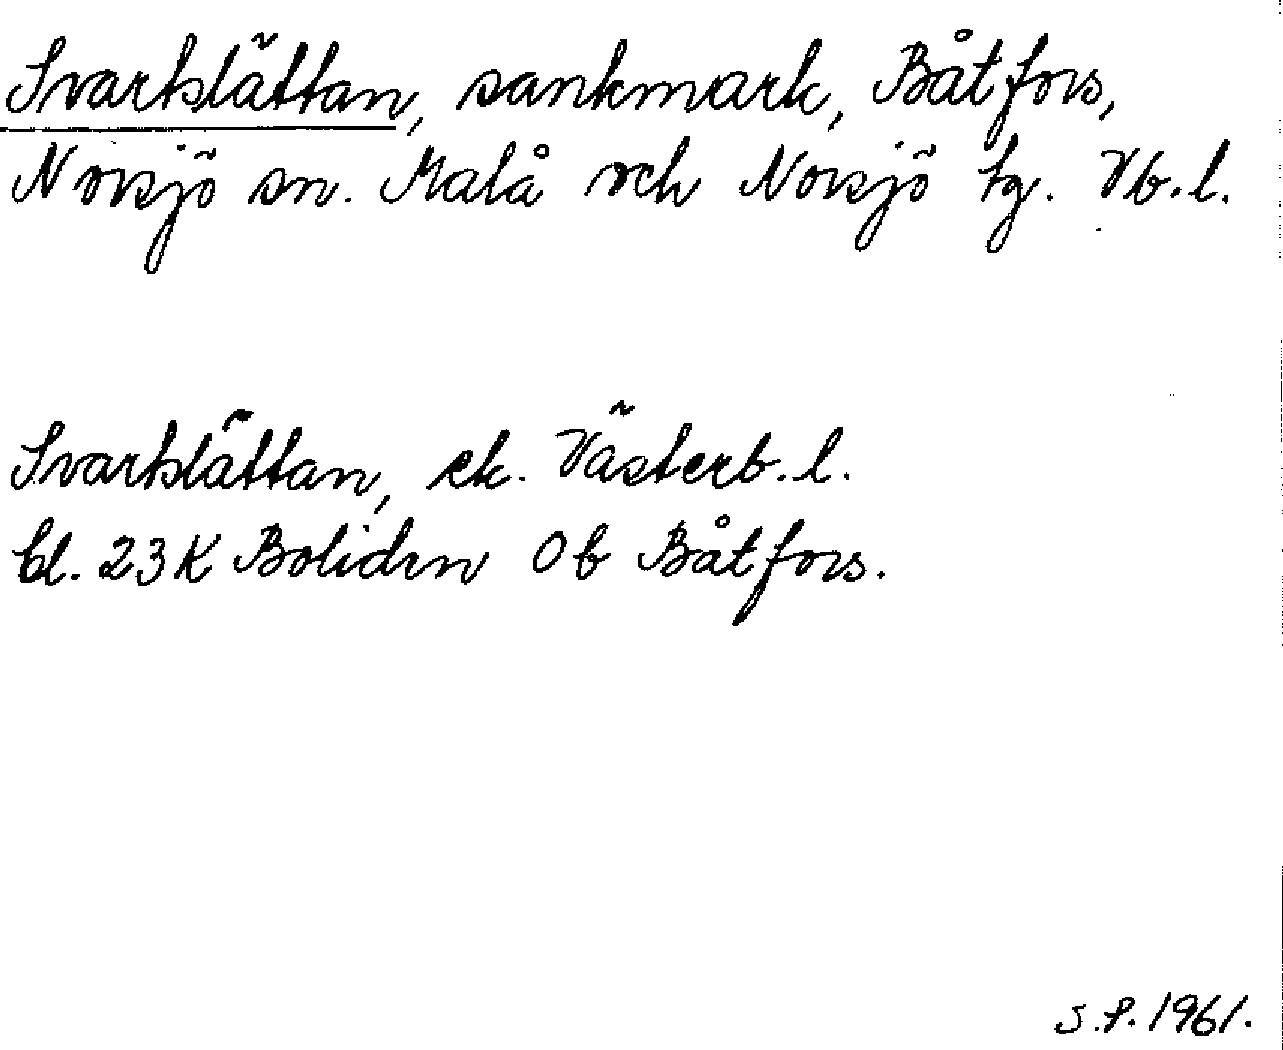 Svartslåttan, sankmark, Båtfors,
Norsjö sn. Malå och Norsjö tg. Vb.l.
Svartslåttan, ek. Västerb.l.
bl. 23K Boliden 0b Båtfors.
S.P. 1961.